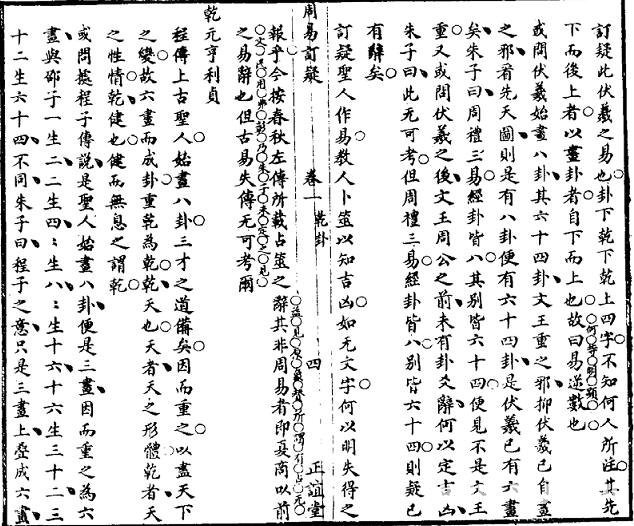 訂疑此伏羲之易也卦下乾下乾上四字不知何人所注其先
下而後上者以畫卦者自下而上也故曰易逆數也何等明顯
或問伏羲始畫八卦其六十四卦文王重之邪抑伏羲已自畫
之邪看先天圖則是有八卦便有六十四卦是伏羲已有六畫
矣朱子曰周禮三易經卦皆八其別皆六十四便見不是文王
重又或問伏羲之後文王周公之前未有卦爻辭何以定吉凶
朱子曰此无可考但周禮三易經卦皆八別皆六十四則疑已
有辭矣
訂疑聖人作易教人卜筮以知吉凶如无文字何以明失得之
周易訂疑 卷一 乾卦 四 正誼堂
報乎今按春秋左傳所載占筮之辭其非周易者即夏商以前
之易辭也但古易失傳无可考爾
乾元亨利貞
程傳上古聖人始畫八卦三才之道備矣因而重之以盡天下
之變故六畫而成卦重乾為乾乾天也天者天之形體乾者天
之性情乾健也健而無息之謂乾
或問據程子傳說是聖人始畫八卦便是三畫因而重之為六
畫與邵子一生二二生四四生八八生十六十六生三十二三
十二生六十四不同朱子曰程子之意只是三畫上疊成六畫